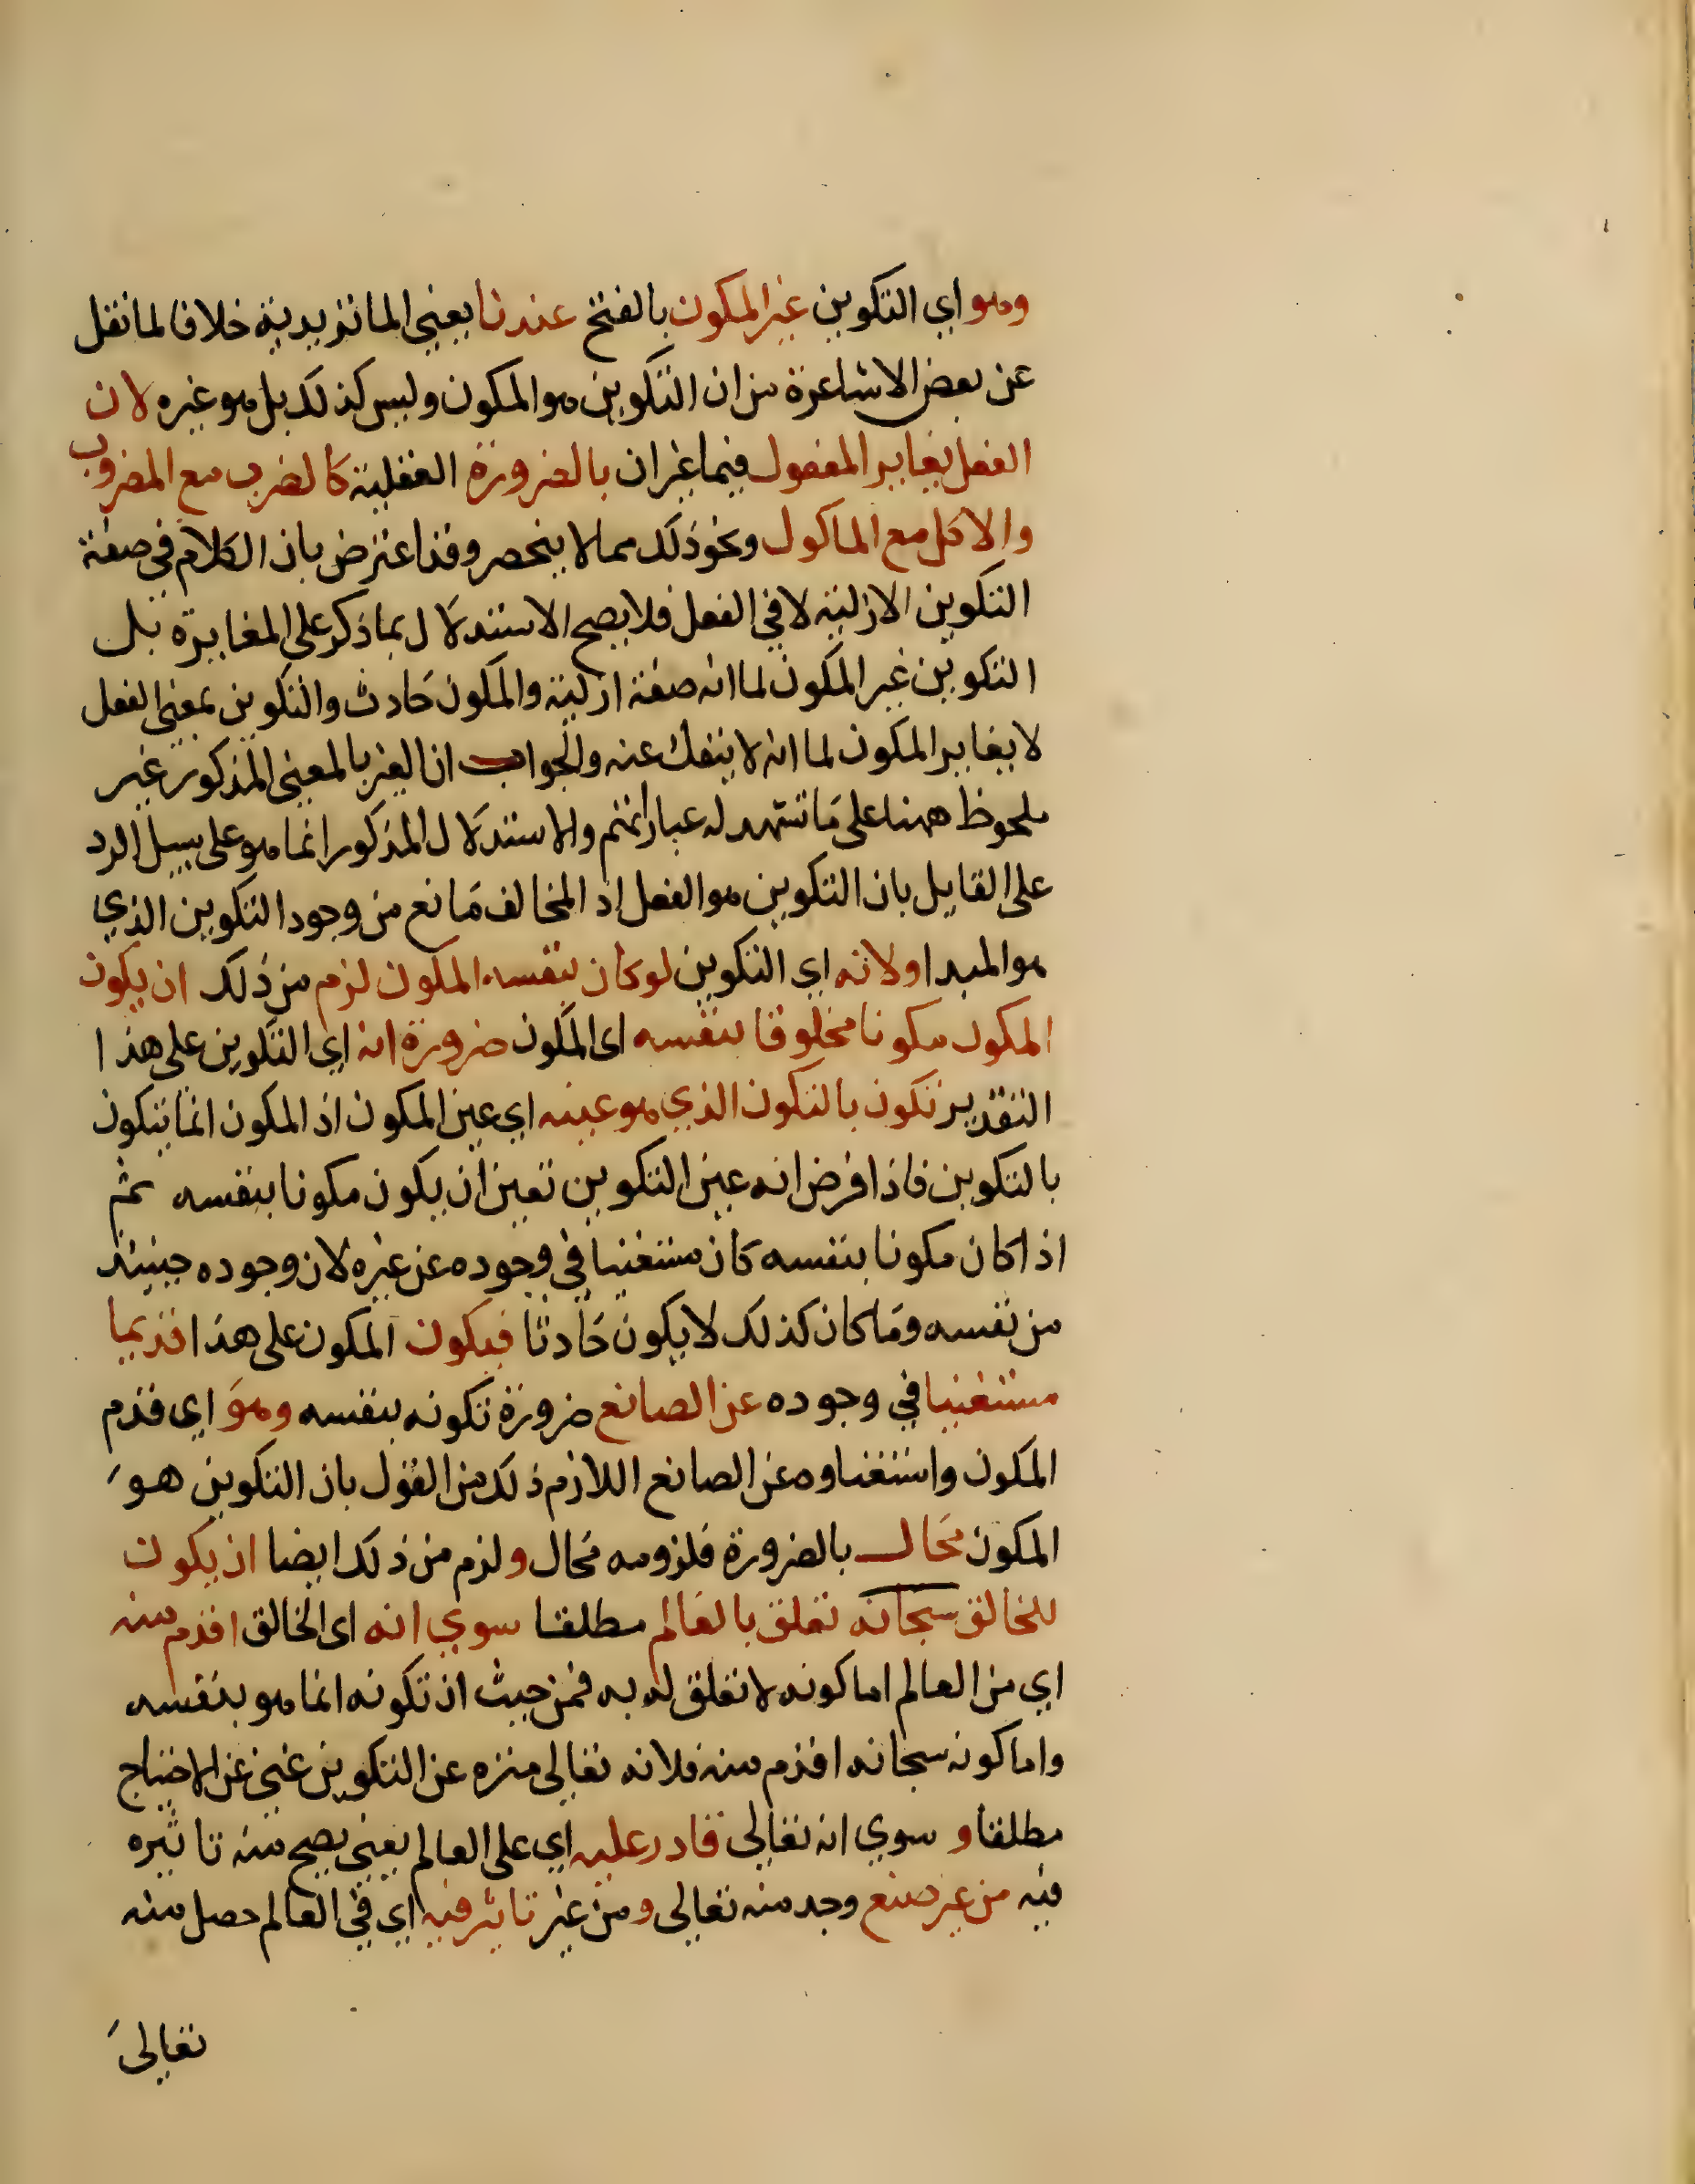 وهو اي التكوين غير المكون بالفتح عندنا يعني الماتريدية خلافا لما نقل
عن بعض الاشاعرة من ان التكوين هو المكون وليس كذلك بل هو غيره لان
الفعل يغاير المفعول فيما غير ان بالضرورة العقلية كالضرب مع المضروب
والاكل مع الماكول ونحو ذلك مما لا ينحصر وقد اعترض بان الكلام في صفة
التكوين الازلية لا في الفعل فلا يصح الاستدلال بما ذكر على المغايرة بل
التكوين غير المكون لما انه صفة ازلية والمكون حادث والتكوين بمعنى الفعل
لا يغاير المكون لما انه لا ينفك عنه والجواب ان الغير بالمعنى المذكور غير
ملحوظ ههنا على ما تشهد له عباراتهم والاستدلال المذكور انما هو على سبيل الرد
على القايل بان التكوين هو الفعل اذ المخالف مانع من وجود التكوين الذي
هو المبدا ولانه اي التكوين لو كان نفسه المكون لزم من ذلك ان يكون
المكون مكونا مخلوقا بنفسه اى المكون ضرورة انه اي التكوين على هذا
التقدير تكون بالتكون الذي هو عينه اي عين المكون اذ المكون انما يتكون
بالتكوين فاذا فرض انه عين التكوين تعين ان يكون مكونا بنفسه ثم
اذا كان مكونا بنفسه كان مستغنيا في وجوده عن غيره لان وجوده حينيئذ
من نفسه وما كان كذلك لا يكون حادثا فيكون المكون على هذا قديما
مستغنيا في وجوده عن الصانع ضرورة تكونه بنفسه وهو اي قدم
المكون واستغناوه عن الصانع اللازم ذلك من القول بان التكوين هو
المكون محال بالضرورة فلزومه محال ولزم من ذلك ايضا ان يكون
للخالق سبحانه تعلق بالعالم مطلقا سوي انه اى الخالق اقدم منه
اي من العالم اما كونه لا تعلق له به فمن حيث ان تكونه انما هو بنفسه
واما كونه سبحانه اقدم منه فلانه تعالى منزه عن التكوين غني عن الاحتياج
مطلقا و سوي انه تعالى قادر عليه اي على العالم يعني يصح منه تاثيره
فيه من غير صنع وجد منه تعالى ومن غير تاثير فيه اي في العالم حصل منه
تعالى